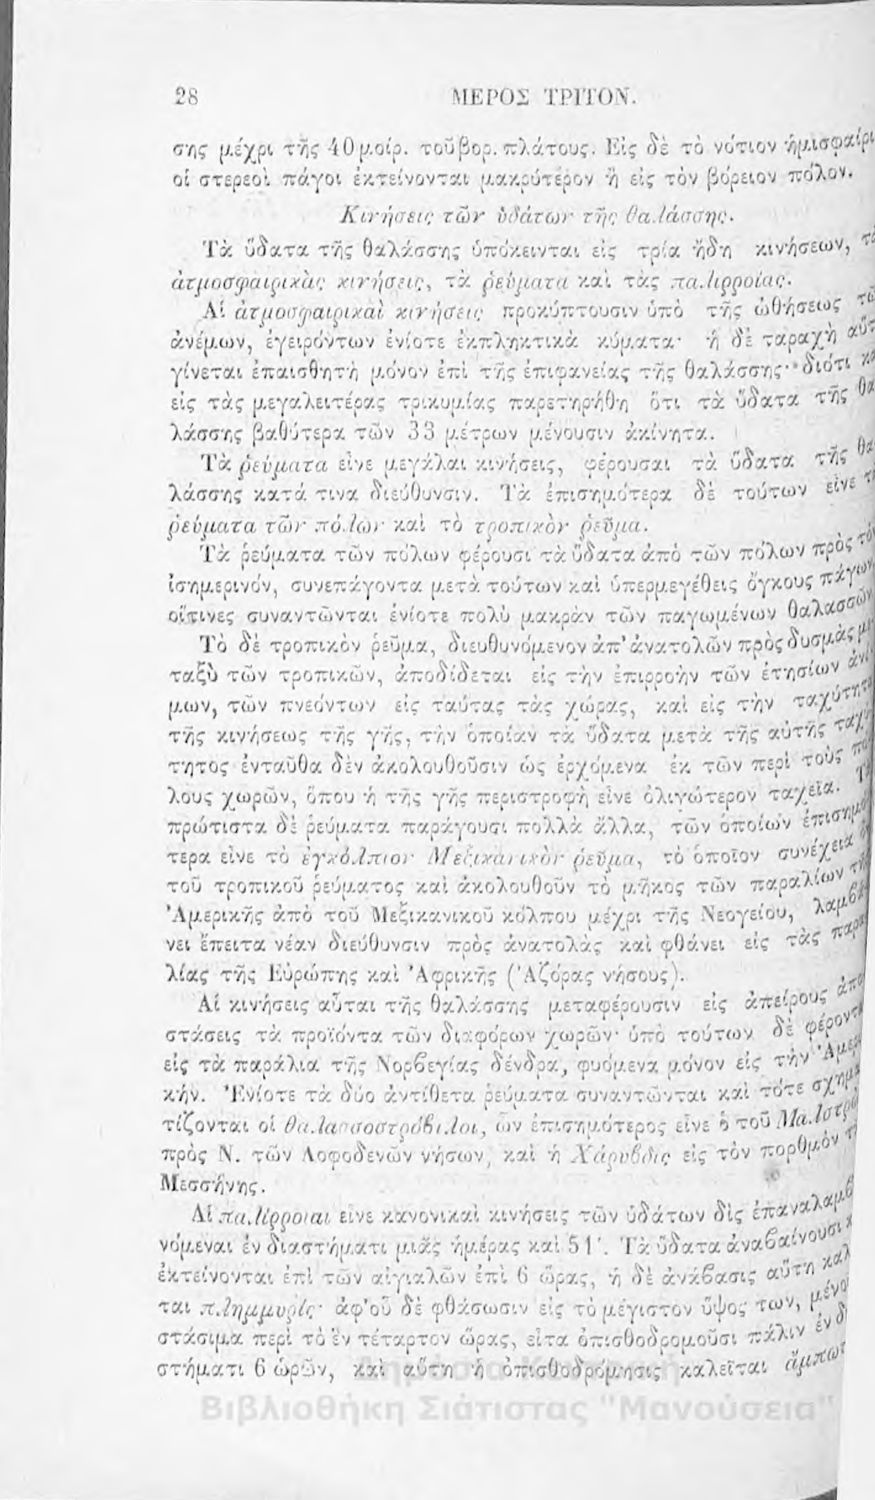 28 ΜΕΡΟΣ ΤΡΙΤΟΝ.
σης μέχρι τῆς 40 μοίρ. τοῦ βορ. πλάτους. Εἰς δὲ τὸ νότιον ἡμισφαίρι
οἱ στερεοὶ πάγοι ἐκτείνονται μακρύτερον ἢ εἰς τὸν βόρειον πόλον.
Κινήσεις τῶν ὑδάτων τῆς θαλάσσης.
Τὰ ὕδατα τῆς θαλάσσης ὑπόκεινται εἰς τρία ἤδη κινήσεων,
ἀτμοσφαιρικὰς κινήσεις, τὰ ῥεύματα καὶ τὰς παλιρροίας.
Αἱ ἀτμοσφαιρικαὶ κινήσεις προκύπτουσιν ὑπὸ τῆς ὠθήσεως τῶ
ἀνέμων, ἐγειρόντων ἐνίοτε ἐκπληκτικὰ κύματα· ἡ δὲ ταραχὴ αὕτ
γίνεται ἐπαισθητὴ μόνον ἐπὶ τῆς ἐπιφανείας τῆς θαλάσσης· διότι κα
εἰς τὰς μεγαλειτέρας τρικυμίας παρετηρήθη ὅτι τὰ ὕδατα τῆς θα
λάσσης βαθύτερα τῶν 33 μέτρων μένουσιν ἀκίνητα.
Τὰ ῥεύματα εἶνε μεγάλαι κινήσεις, φέρουσαι τὰ ὕδατα τῆς θα
λάσσης κατά τινα διεύθυνσιν. Τὰ ἐπισημότερα δὲ τούτων εἶνε τ
ῥεύματα τῶν πόλων καὶ τὸ τροπικὸν ῥεῦμα.
Τὰ ῥεύματα τῶν πόλων φέρουσι τὰ ὕδατα ἀπὸ τῶν πόλων πρὸς τὸ
ἰσημερινόν, συνεπάγοντα μετὰ τούτων καὶ ὑπερμεγέθεις ὄγκους πάγων
οἵτινες συναντῶνται ἐνίοτε πολὺ μακρὰν τῶν παγωμένων θαλασσῶν
Τὸ δὲ τροπικὸν ῥεῦμα, διευθυνόμενον ἀπ' ἀνατολῶν πρὸς δυσμὰς με
ταξὺ τῶν τροπικῶν, ἀποδίδεται εἰς τὴν ἐπιρροὴν τῶν ἐτησίων ἀνέ
μων, τῶν πνεόντων εἰς ταύτας τὰς χώρας, καὶ εἰς τὴν ταχύτητα
τῆς κινήσεως τῆς γῆς, τὴν ὁποίαν τὰ ὕδατα μετὰ τῆς αὐτῆς ταχύ
τητος ἐνταῦθα δὲν ἀκολουθοῦσιν ὡς ἐρχόμενα ἐκ τῶν περὶ τοὺς πό
λους χωρῶν, ὅπου ἡ τῆς γῆς περιστροφὴ εἶνε ὀλιγώτερον ταχεῖα. Τὰ
πρώτιστα δὲ ῥεύματα παράγουσι πολλὰ ἄλλα, τῶν ὁποίων ἐπισημό
τερα εἶνε τὸ ἐγκόλπιον Μεξικανικὸν ῥεῦμα, τὸ ὁποῖον συνέχεια ὂ
τοῦ τροπικοῦ ῥεύματος καὶ ἀκολουθοῦν τὸ μῆκος τῶν παραλίων τῆ
Ἀμερικῆς ἀπὸ τοῦ Μεξικανικοῦ κόλπου μέχρι τῆς Νεογείου, λαμβά
νει ἔπειτα νέαν διεύθυνσιν πρὸς ἀνατολὰς καὶ φθάνει εἰς τὰς παρα
λίας τῆς Εὐρώπης καὶ Ἀφρικῆς (Ἀζόρας νήσους).
Αἱ κινήσεις αὗται τῆς θαλάσσης μεταφέρουσιν εἰς ἀπείρους ἀπο
στάσεις τὰ προϊόντα τῶν διαφόρων χωρῶν· ὑπὸ τούτων δὲ φέροντα
εἰς τὰ παράλια τῆς Νορβεγίας δένδρα, φυόμενα μόνον εἰς τὴν Ἀμερι
κήν. Ἐνίοτε τὰ δύο ἀντίθετα ῥεύματα συναντῶνται καὶ τότε σχημα
τίζονται οἱ θαλασσοστρόβιλοι, ὧν ἐπισημότερος εἶνε ὁ τοῦ Μαλστρὸ
πρὸς Ν. τῶν Λοφοδενῶν νήσων, καὶ ἡ Χάρυβδις εἰς τὸν πορθμὸν τ
Μεσσήνης.
Αἱ παλίρροιαι εἶνε κανονικαὶ κινήσεις τῶν ὑδάτων δὶς ἐπαναλαμβ
νόμεναι ἐν διαστήματι μιᾶς ἡμέρας καὶ 51'. Τὰ ὕδατα ἀναβαίνουσι κ
ἐκτείνονται ἐπὶ τῶν αἰγιαλῶν ἐπὶ 6 ὥρας, ἡ δὲ ἀνάβασις αὕτη καλ
ται πλημμυρίς· ἀφ' οὗ δὲ φθάσωσιν εἰς τὸ μέγιστον ὕψος των, μένο
στάσιμα περὶ τὸ ἓν τέταρτον ὥρας, εἶτα ὀπισθοδρομοῦσι πάλιν ἐν δι
στήματι 6 ὡρῶν, καὶ αὕτη ἡ ὀπισθοδρόμησις καλεῖται ἄμπωτ
Βιβλιοθήκη Σιάτιστας "Μανούσεια"